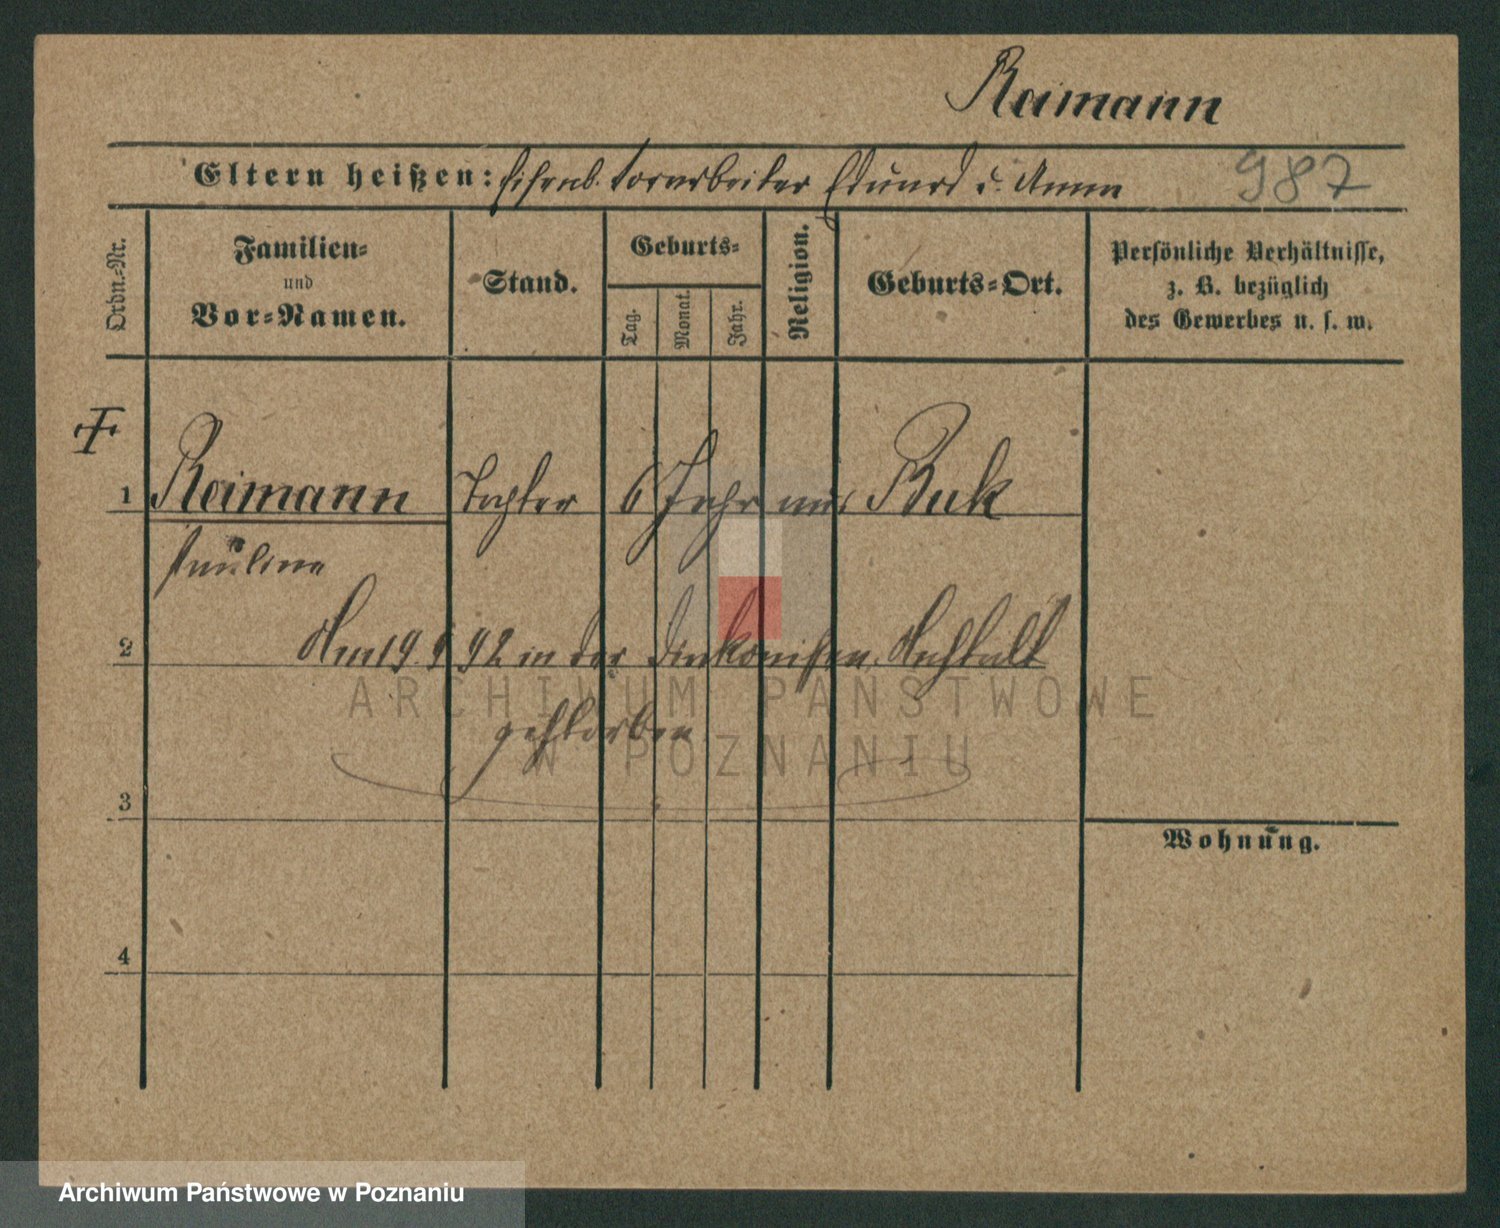 Reimann
Eltern heißen: Eisenb. Vorarbeiter Eduard u. Anna 987
Ordn.-Nr.
Familien-
und
Vor-Namen.
Stand.
Geburts-
Tag.
Monat.
Jahr.
Religion.
Geburts-Ort.
Persönliche Verhältnisse,
z. B. bezüglich
des Gewerbes u. s. w.
1 Reimann Tochter 6 Jahr aus Buk
Pauline
2 Am 19. 9 92 in der Diakonissen Anstalt
gestorben
3
Wohnung.
4
ARCHIWUM PAŃSTWOWE
W POZNANIU
Archiwum Państwowe w Poznaniu